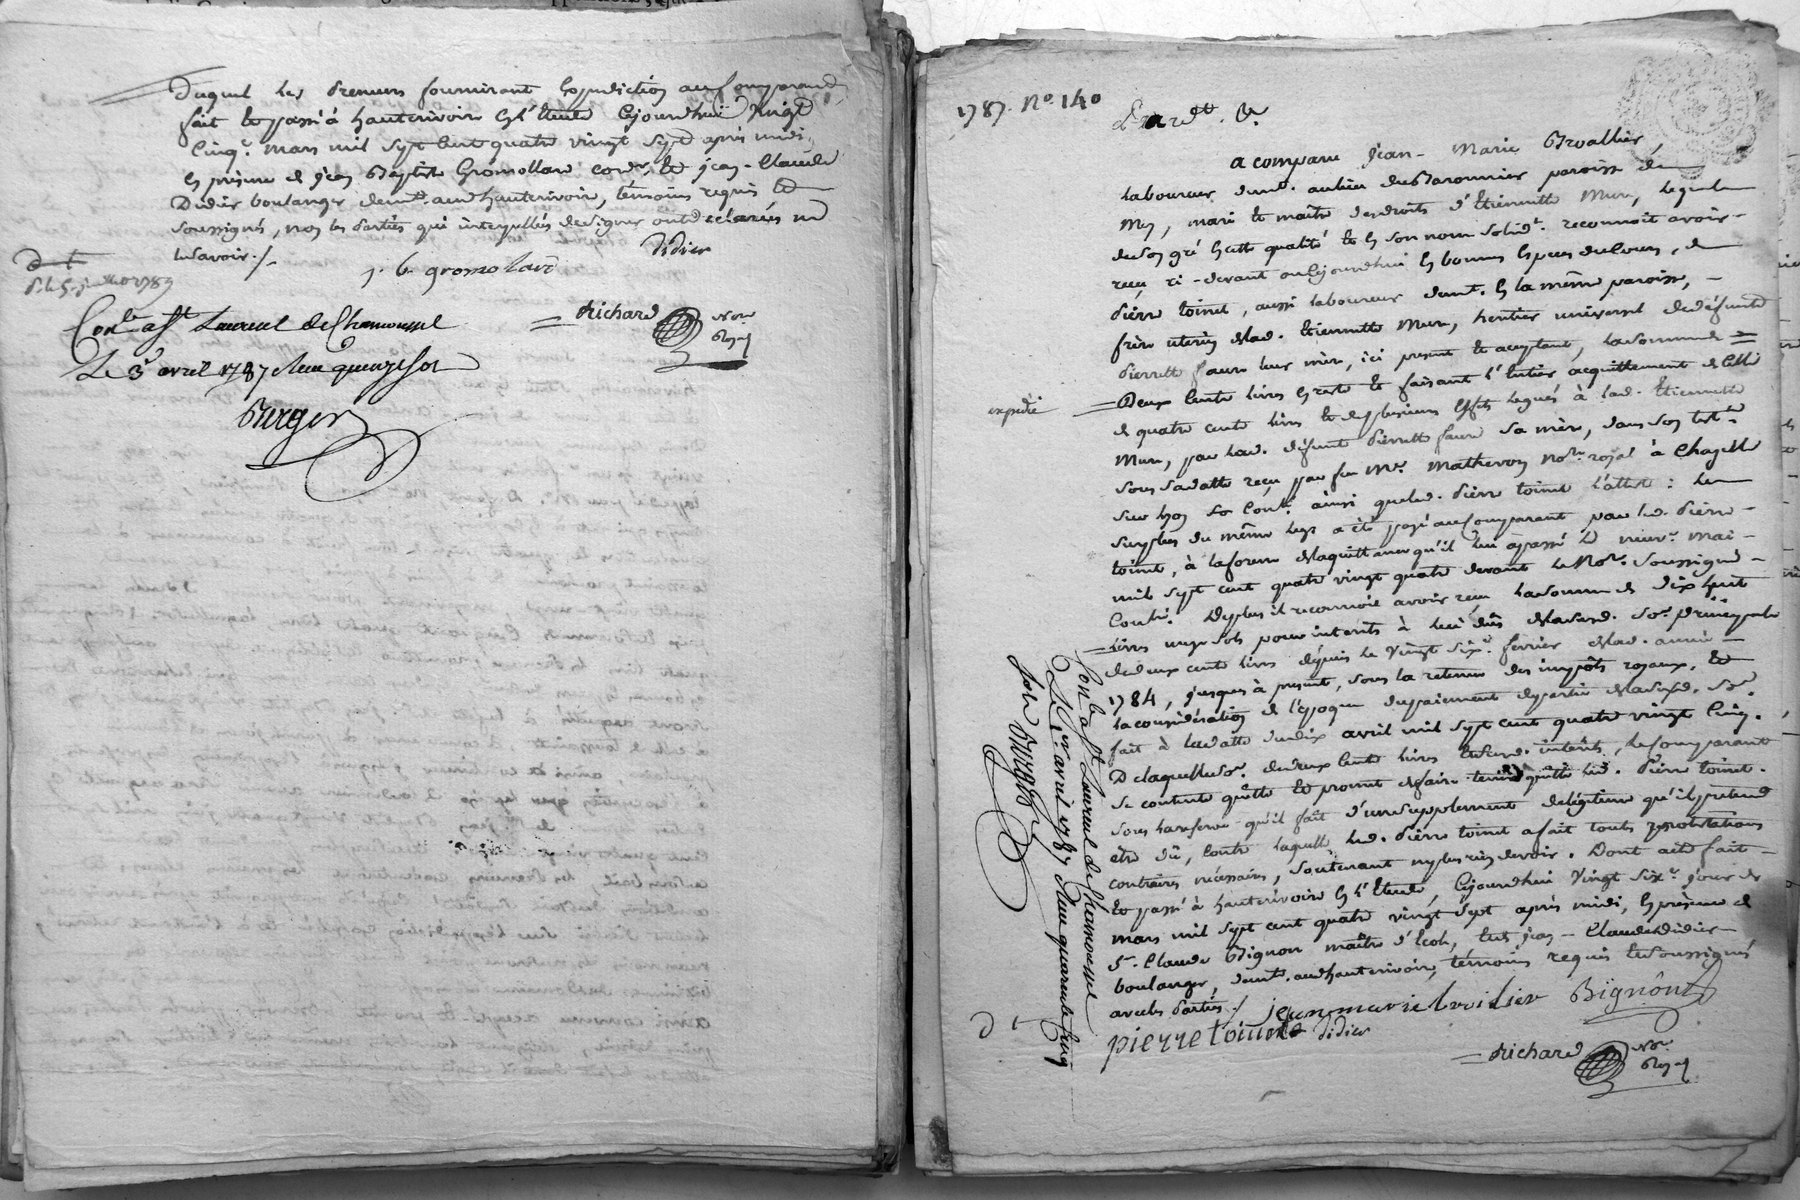 Duquel les preneurs fourniront expedition au comparant
fait et passé à hauterivoire en l'étude cejourdhui vingt
cinq.e mars mil sept cent quatre vingt sept après midi,
en présence de jean Baptiste Gromollard cord.r, et jean-Claude
Didier boulanger demt. aud. hauterivoire, témoins requis et
soussignés, non les parties qui interpellés de signer ont déclarées ne
le savoir ./.
Didier
j. b. gromolard
Con.le à St. Laurent de Chamousset
Le 3 avril 1787 Reçu quinze sols
Berger
Richard No.re Royal
1787. No. 140
Pardt. &.
a comparu jean-Marie Broallier,
laboureur demt. au lieu des Baronnier paroisse de
Mey, mari et maître des droits d'Etiennette Mure, lequel
de son gré en cette qualité et en son nom solidt. reconnoit avoir
reçu ci-devant ou cejourdhui en bonnes espèces du cours, de
pierre toinet, aussi laboureur demt. en la même paroisse,
frère utérin de lad. Etiennette Mure, heritier universel de défunte
Pierrette faure leur mère, ici present et acceptant, la somme de
expedié
Deux cents livres en reste et faisant l'entier acquittement de celle
de quatre cents livres et de plusieurs effets legués à lad. Etiennette
Mure, par lad. défunte Pierrette faure sa mère, dans son testt.
sous sa datte reçu par feu Me. Mathevon No.re royal à Chazelle
sur lyon so. Conté. ainsi que led. Pierre toinet l'atteste : le
surplus du même legs a été payé au comparant par led. Pierre
toinet, à la forme de la quittance qu'il lui a passé le neuv.e mai
mil sept cent quatre vingt quatre devant le No.re soussigné
Conté. De plus il reconnoit avoir reçu la somme de dix huit
livres onze sols pour interêts à lui dûs de lad. so.e principale
de deux cents livres depuis le vingt six.e fevrier de lad. année
1784, jusques à present, sous la retenue des impôts royaux, et
la considération de l'époque du paiement de partie de lad. so.e
fait à la datte du dix avril mil sept cent quatre vingt cinq.
De laquelle so.e de deux cents livres et desd. interêts, le comparant
se contente quitte et promet de faire tenir quitte led. Pierre toinet.
sous la reserve qu'il fait d'un supplement de légitime qu'il prétend
être dû, contre laquelle led. Pierre toinet a fait toutes protestations
contraires nécessaires, soutenant ne plus rien devoir. Dont acte fait
et passé à hauterivoire en l'étude, cejourdhui vingt six.e jour de
mars mil sept cent quatre vingt sept après midi, en présence de
Sr. Claude Bignon maître d'école, et jean-Claude didier
boulanger, demt. aud. hauterivoire, témoins requis et soussignés
avec les parties ./.
jean marie broilier Bignon
pierre toinet Didier
Richard No.re Royal
Con.le à St. Laurent de Chamousset
Le 3 avril 1787 Reçu quarante cinq
sols Berger